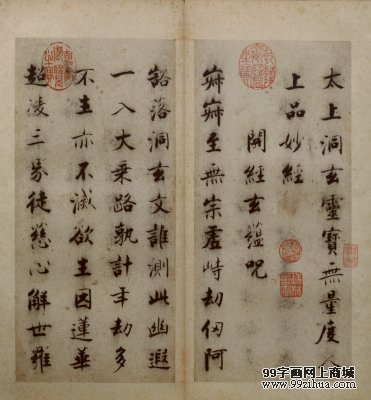 太上洞玄靈寶無量度人
上品妙經
開經玄蘊咒
寂寂至無宗虛峙劫仞阿
豁落洞玄文誰測此幽遐
一入大乘路孰計年劫多
不生亦不滅欲生因蓮華
超凌三界徒慈心解世羅
99字画网上商城
www.99zihua.com